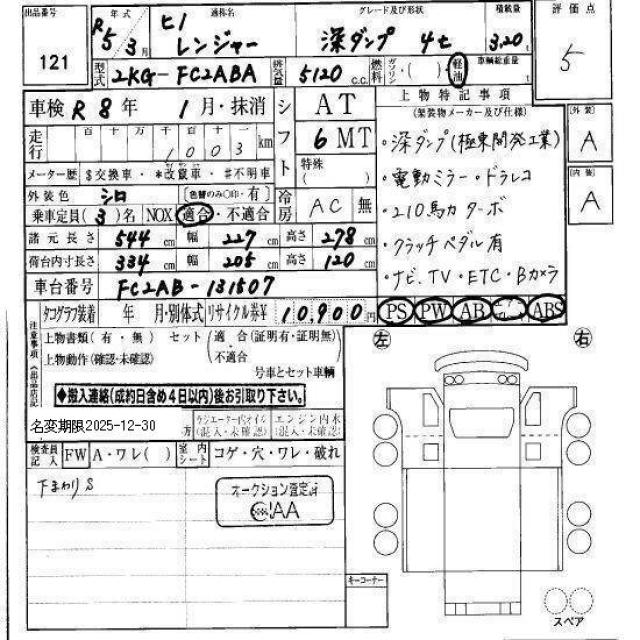 出品番号 年式 通称名 グレード及び形状 積載量 評価点
121 R5年3月 ヒノ レンジャー 深ダンプ 4t 3.20t 5
型式 2KG-FC2ABA 排気量 5120 c.c. 燃料 ガソリン・( )・軽油 車輌総重量 t
車検 R8年 1月・抹消 シフト AT 上物特記事項
(架装物メーカー及び仕様) 外装 A
走行 百 十 万 千 百 十 一
1003 km 6 MT ・深ダンプ(極東開発工業)
メーター歴 $交換車・*改竄車・#不明車 特殊( ) ・電動ミラー・ドラレコ 内装 A
外装色 シロ [色替のみ○印・有] 冷房 AC 無 ・210馬力ターボ
乗車定員(3)名 NOX 適合・不適合
諸元長さ 544 cm 幅 227 cm 高さ 278 cm ・クラッチペダル有
荷台内寸長さ 334 cm 幅 205 cm 高さ 120 cm
車台番号 FC2AB-131507 ・ナビ.TV・ETC・Bカメラ
タコグラフ装着 年 月・別体式 リサイクル券¥ 10,900円 PS PW AB ABS
注意事項《出品店記 上物書類(有・無) セット(適合(証明有・証明無)・不適合) 左 右
上物動作(確認・未確認)
号車とセット車輌
◆搬入連絡(成約日含め4日以内)後お引取り下さい。
名変期限2025-12-30 ラジエーター内オイル(混入・未確認) エンジン内水(混入・未確認)
検査員記入 FW A・ワレ( ) 室内シート コゲ・穴・ワレ・破れ
下まわりS オークション査定済
JAA
キーコーナー
スペア